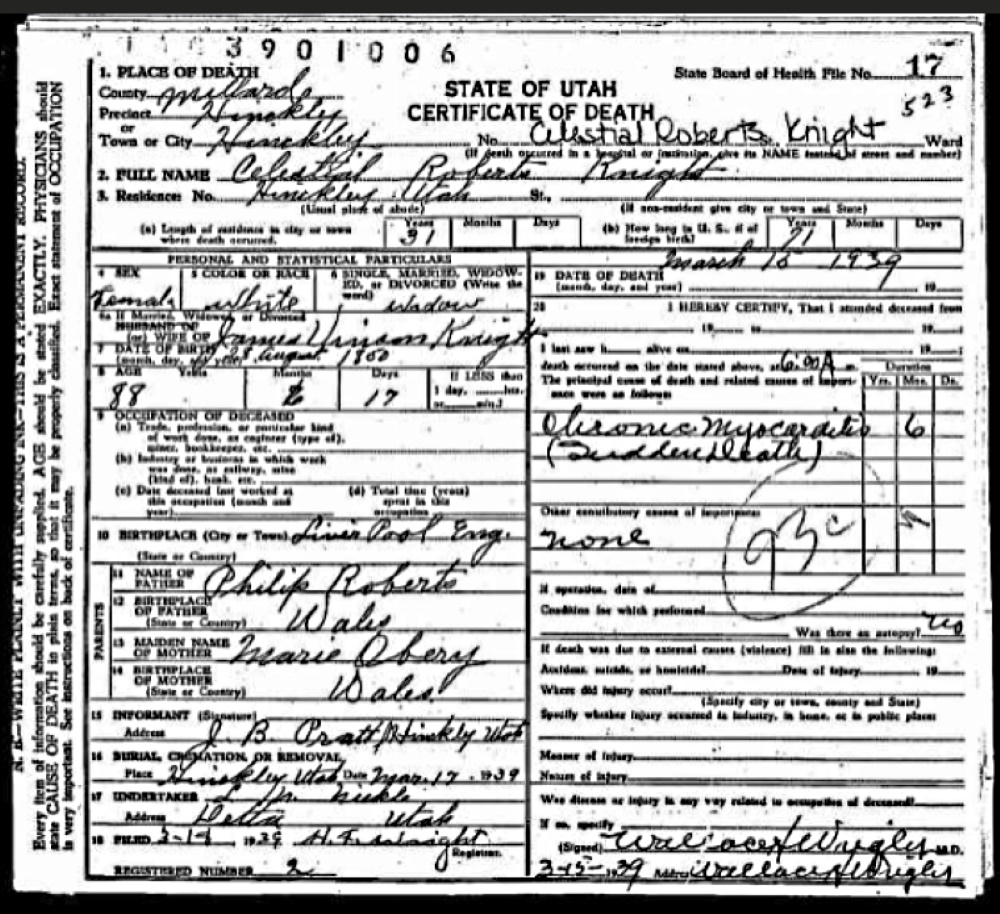 3901006
1. PLACE OF DEATH
County Millard
Precinct Hinckley
or
Town or City Hinckley
STATE OF UTAH
CERTIFICATE OF DEATH
State Board of Health File No. 17
523
No. Celestial Roberts St. Knight Ward
(If death occurred in a hospital or institution, give its NAME instead of street and number)
2. FULL NAME Celestial Roberts Knight
3. Residence: No. Hinckley Utah St.,
(Usual place of abode) (If non-resident give city or town and State)
(a) Length of residence in city or town where death occurred. Years 31 Months Days
(b) How long in U. S., if of foreign birth? Years 71 Months Days
PERSONAL AND STATISTICAL PARTICULARS
4 SEX Female
5 COLOR OR RACE White
6 SINGLE, MARRIED, WIDOWED, or DIVORCED (Write the word) Widow
6a If Married, Widowed, or Divorced
HUSBAND OF
(or) WIFE OF James Vinson Knight
7 DATE OF BIRTH
(month, day, and year) August 1850
8 AGE Years 88 Months Days 17 If LESS than 1 day, hrs. or min.?
9 OCCUPATION OF DECEASED
(a) Trade, profession, or particular kind of work done, as engineer (type of), miner, bookkeeper, etc.
(b) Industry or business in which work was done, as railway, mine (kind of), bank, etc.
(c) Date deceased last worked at this occupation (month and year)
(d) Total time (years) spent in this occupation
10 BIRTHPLACE (City or Town) Liver Pool Eng.
(State or Country)
PARENTS
11 NAME OF FATHER Philip Roberts
12 BIRTHPLACE OF FATHER
(State or Country) Wales
13 MAIDEN NAME OF MOTHER Marie Obery
14 BIRTHPLACE OF MOTHER
(State or Country) Wales
15 INFORMANT (Signature)
Address J. B. Pratt Hinckley Utah
16 BURIAL, CREMATION, OR REMOVAL
Place Hinckley Utah Date Mar. 17, 1939
17 UNDERTAKER
Address Delta Utah
18 FILED 1939 H. F. Wright
Registrar.
REGISTERED NUMBER 2
19 DATE OF DEATH March 15 1939
(month, day, and year) 19
20 I HEREBY CERTIFY, That I attended deceased from
19 19
I last saw h alive on 19
death occurred on the date stated above, at 6:00 A m.
The principal cause of death and related causes of importance were as follows: Duration Yrs. Mos. Ds.
Chronic Myocarditis 6
(Sudden Death)
Other contributory causes of importance:
none
93c
If operation, date of
Condition for which performed
Was there an autopsy? no
If death was due to external causes (violence) fill in also the following:
Accident, suicide, or homicide? Date of injury 19
Where did injury occur?
(Specify city or town, county and State)
Specify whether injury occurred in industry, in home, or in public place:
Manner of injury
Nature of injury
Was disease or injury in any way related to occupation of deceased?
If so, specify
(Signed) M.D.
3-15-1939 Address
N. B.—WRITE PLAINLY WITH UNFADING INK—THIS IS A PERMANENT RECORD.
Every item of information should be carefully supplied. AGE should be stated EXACTLY. PHYSICIANS should
state CAUSE OF DEATH in plain terms, so that it may be properly classified. Exact statement of OCCUPATION
is very important. See instructions on back of certificate.